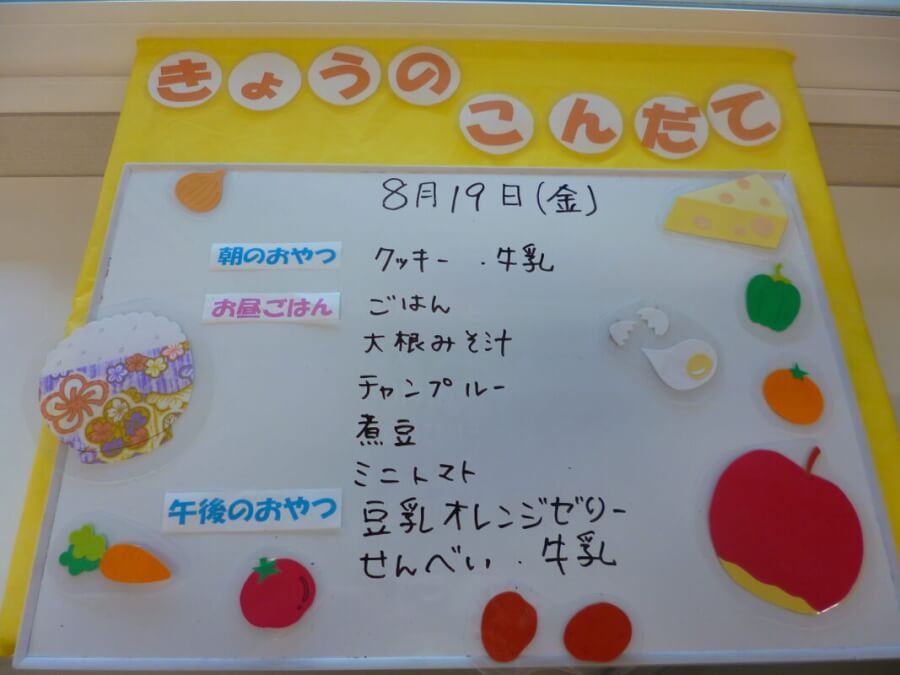 きょうの
こんだて
8月19日(金)
朝のおやつ クッキー ・牛乳
お昼ごはん ごはん
大根みそ汁
チャンプルー
煮豆
ミニトマト
午後のおやつ 豆乳オレンジゼリー
せんべい ・牛乳